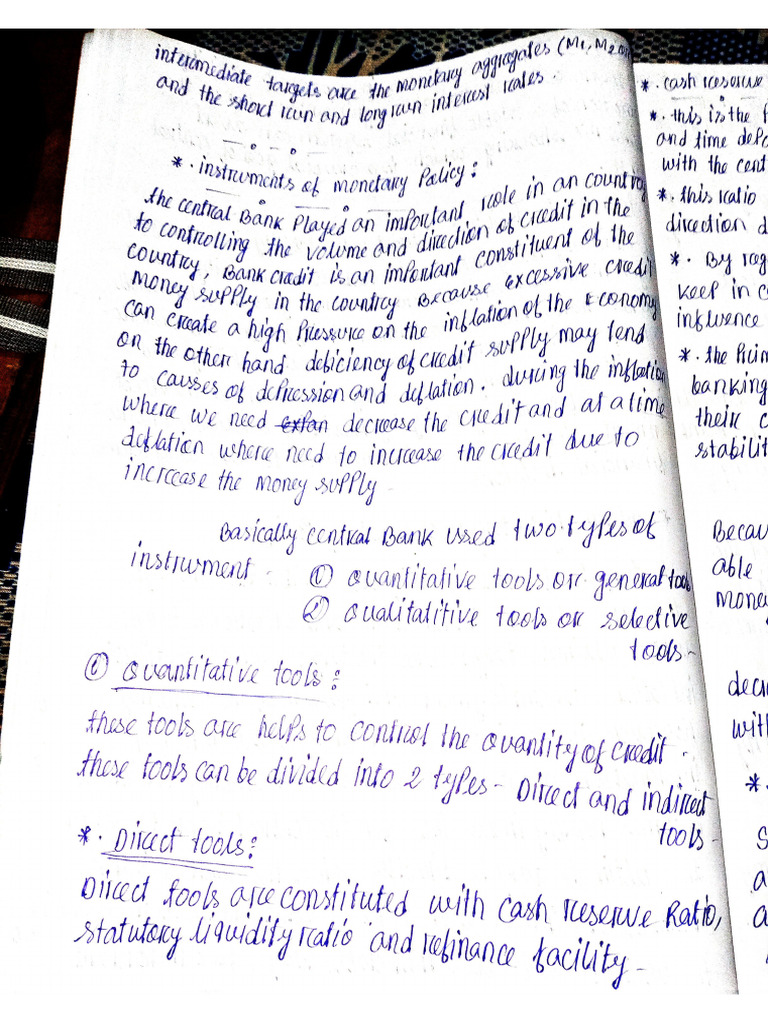 intermediate targets are the monetary aggregates (M1, M2 or
and the short run and long run interest rates.
*. instruments of monetary Policy:
the central Bank Played an important role in an country
to controlling the volume and direction of credit in the
country, Bank credit is an important constituent of the
money supply in the country Because excessive credit
can create a high Pressure on the inflation of the Economy
on the other hand deficiency of credit supply may tend
to causes of depression and deflation. during the inflation
where we need expan decrease the credit and at a time
deflation where need to increase the credit due to
increase the money supply -
Basically central Bank used two types of
instrument - ① quantitative tools or general tools
② qualitatitive tools or selective
tools -
① quantitative tools:
these tools are helps to control the quantity of credit -
these tools can be divided into 2 types - Direct and indirect
tools -
*. Direct tools:
Direct tools are constituted with cash reserve Ratio,
statutory liquidity ratio and refinance facility -
*. cash reserve
*. this is the
and time depo
with the cent
*. this ratio
direction d
*. By reg
keep in c
influence
*. the Prim
banking
their c
stabilit
Becau
able
mone
decr
with
*.
s
a
a